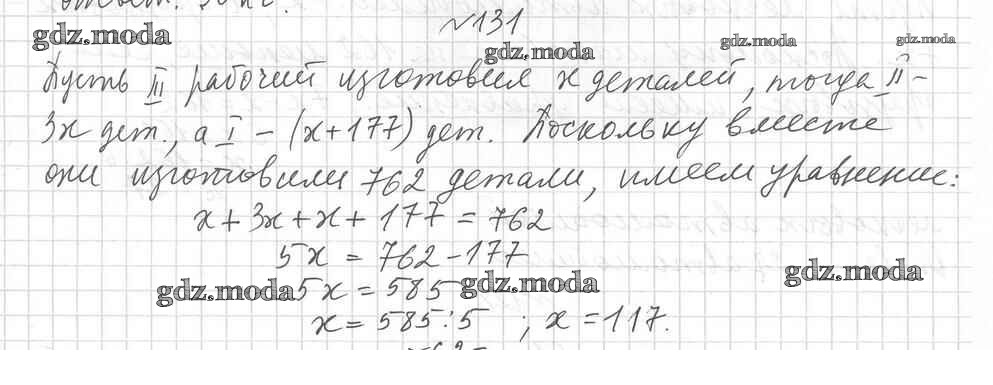 №131
gdz.moda gdz.moda gdz.moda gdz.moda
Пусть III рабочий изготовил x деталей, тогда II –
3x дет., а I – (x+177) дет. Поскольку вместе
они изготовили 762 детали, имеем уравнение:
x + 3x + x + 177 = 762
5x = 762 – 177
gdz.moda 5x = 585 gdz.moda gdz.moda
x = 585 : 5 ; x = 117.